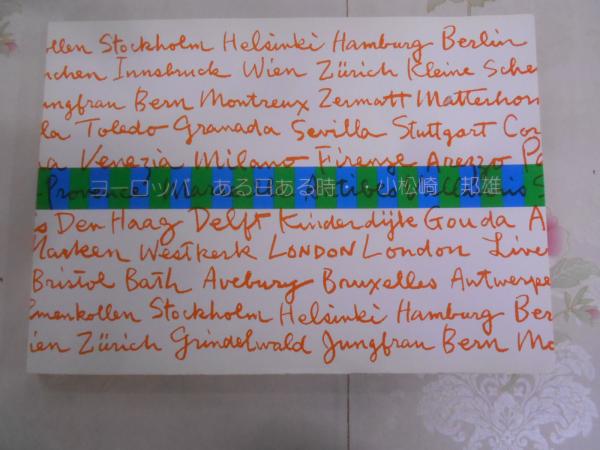 ollen Stockholm Helsinki Hamburg Berlin
nchen Innsbruck Wien Zürich Kleine Sche
ungfrau Bern Montreux Zermatt Matterhorn
la Toledo Granada Sevilla Stuttgart Cor
a Venezia Milano Firenze Arezzo Pa
Provence
ヨーロッパ ある日ある時・・小松崎 邦雄
s Den Haag Delft Kinderdijke Gouda A
Marken Westkerk LONDON London Live
Bristol Bath Avebury Bruxelles Antwerpe
lmenkollen Stockholm Helsinki Hamburg Ber
ien Zürich Grindelwald Jungfrau Bern Mo